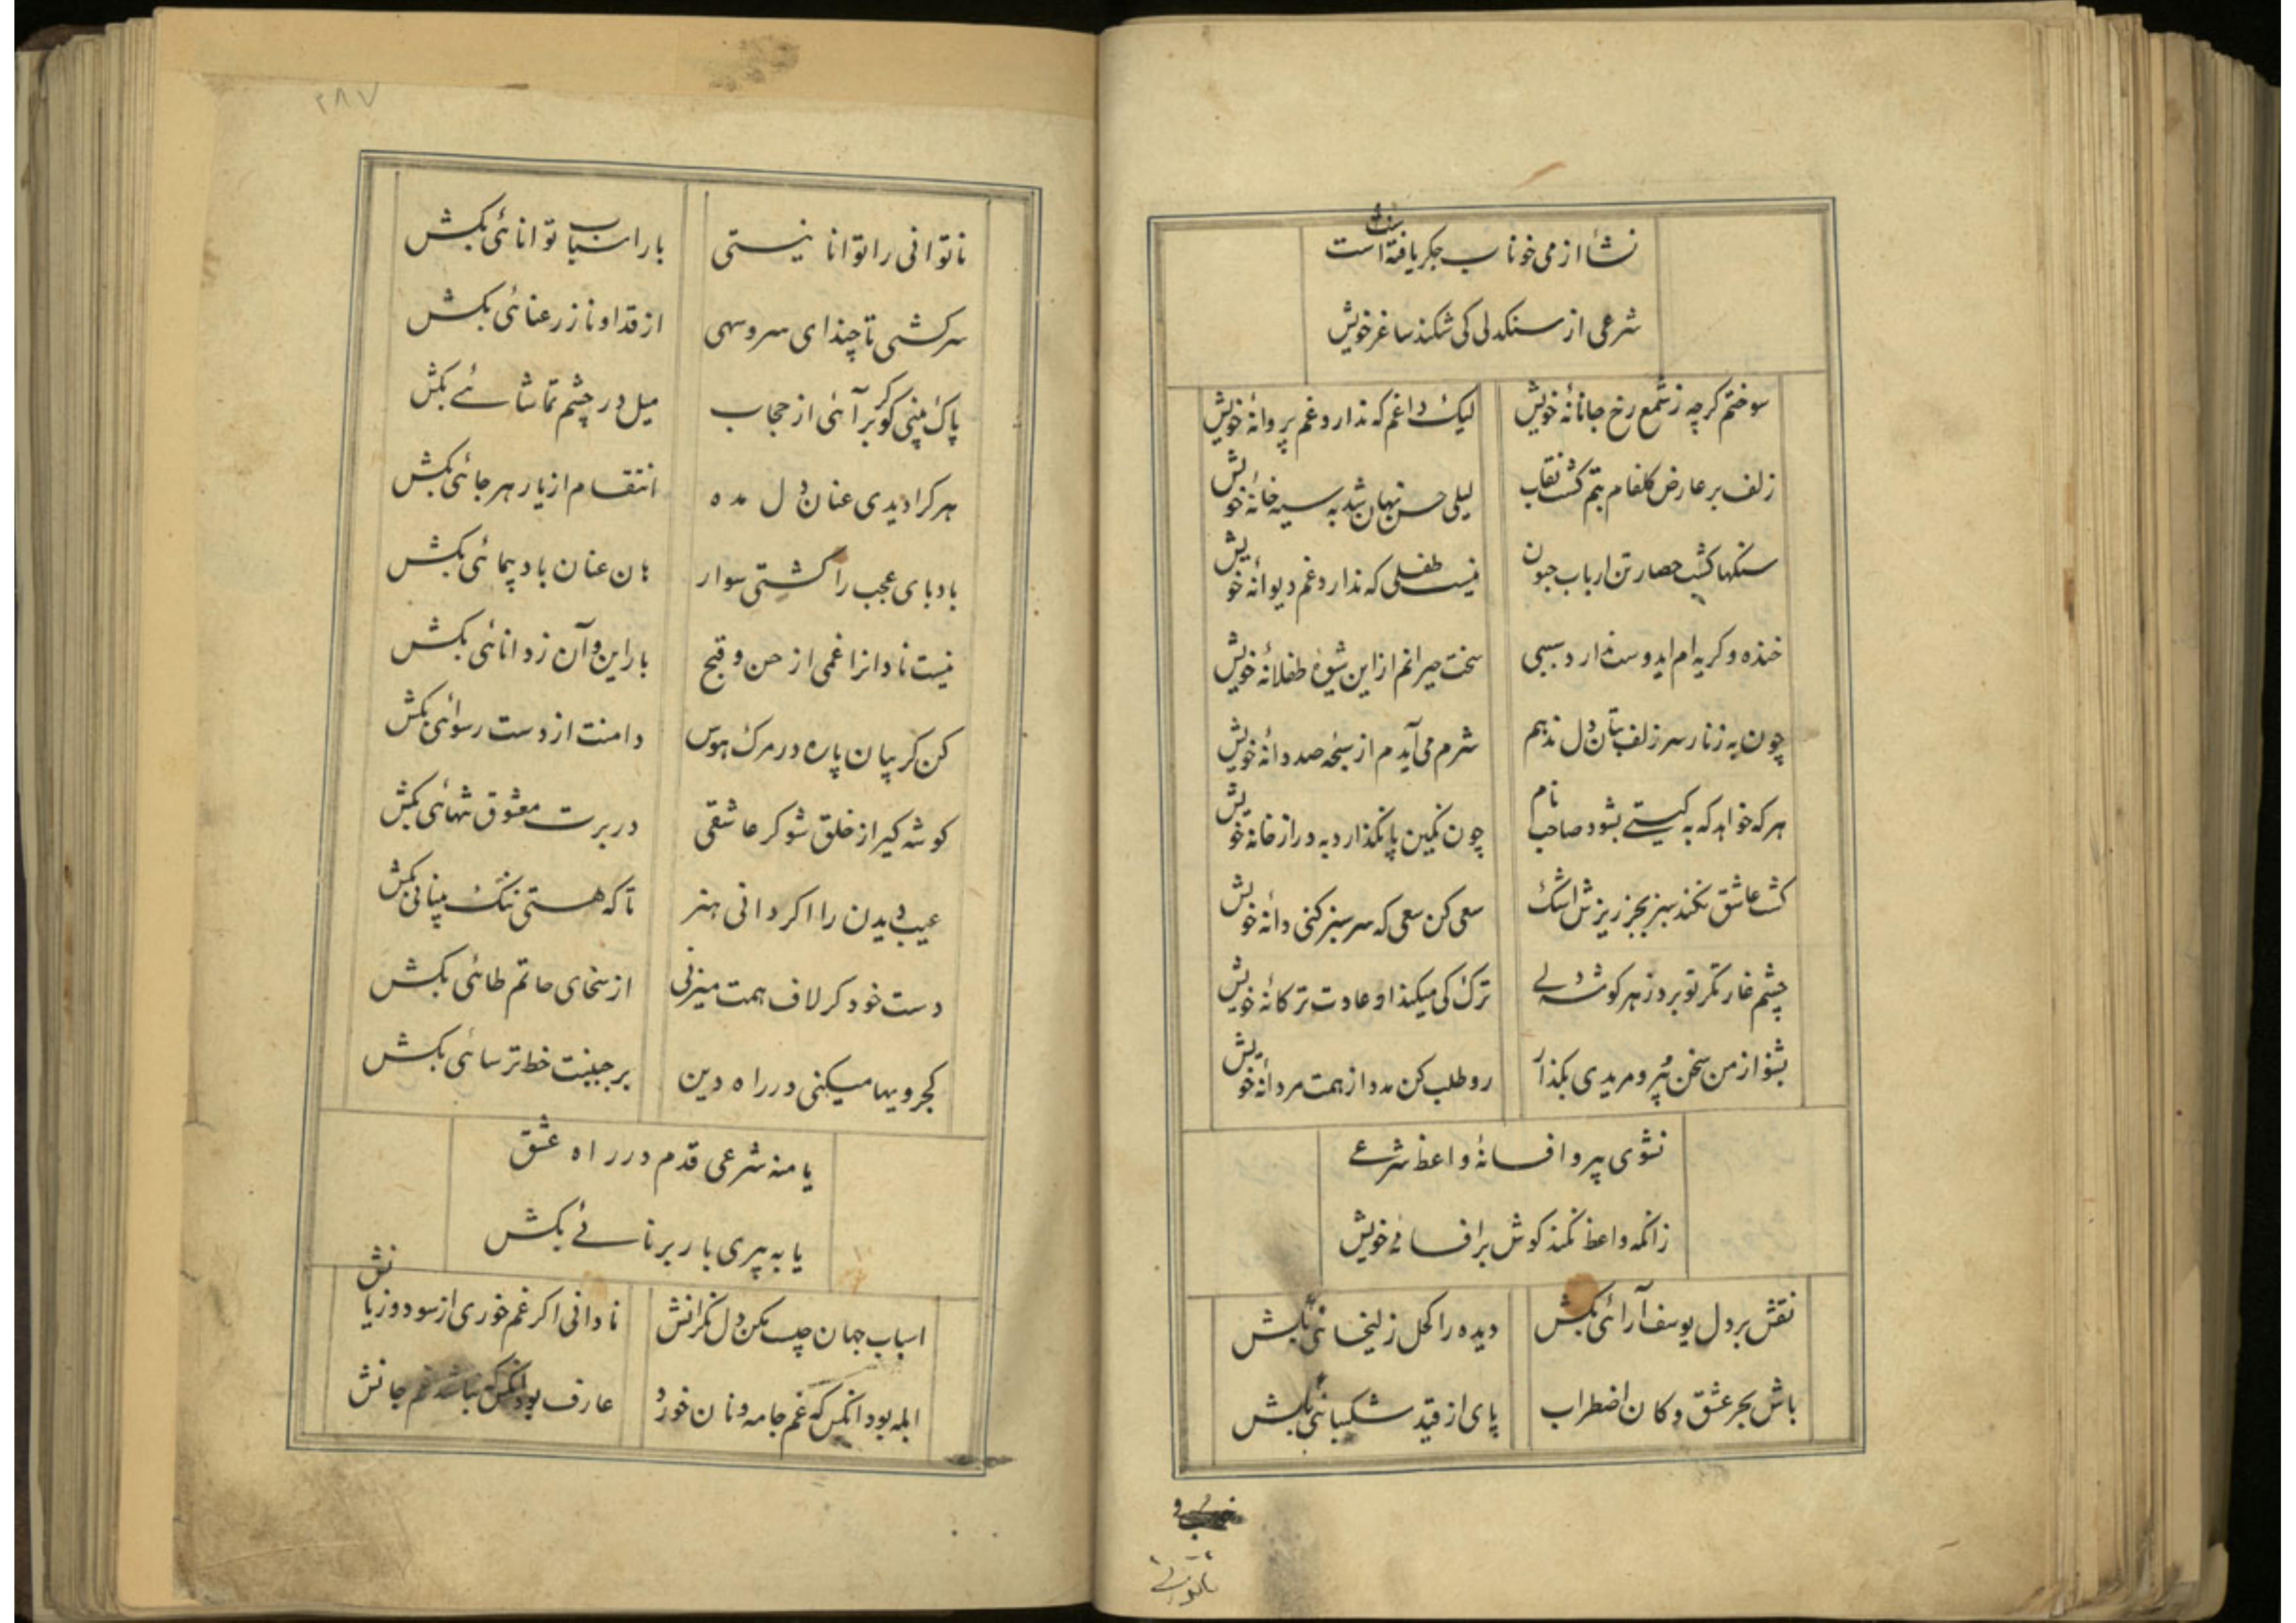 نشأ از می خوناب جکر یافته است
شرعی از سنکدلی کی شکند ساغر خویش
سوختم کرچه ز شمع رخ جانانهٔ خویش لیک داغم که ندارد غم پروانهٔ خویش
زلف بر عارض کلفام بتم کشت نقاب لیلی حسن نهان شد به سیه خانهٔ خویش
سنکها کشت حصار تن ارباب جنون نیست طفلی که ندارد غم دیوانهٔ خویش
خنده و کریه ام ایدوست ندارد سببی سخت حیرانم از این شیوهٔ طفلانهٔ خویش
چون به زنار سر زلف بتان دل ندهم شرم می آیدم از سبحهٔ صد دانهٔ خویش
هر که خواهد که به کیتی بشود صاحب نام چون نکین پا نکذارد به در از خانهٔ خویش
کشت عاشق نکند سبز بجز ریزش اشک سعی کن سعی که سر سبز کنی دانهٔ خویش
چشم غارتکر تو برد ز هر کوشه دلی ترک کی میکند او عادت ترکانهٔ خویش
بشنو از من سخن پیر و مریدی بکذار رو طلب کن مدد از همت مردانهٔ خویش
نشوی پیرو افسانهٔ واعظ شرعی
زانکه واعظ نکند کوش بر افسانهٔ خویش
نقش بر دل یوسف آرائی بکش دیده را کحل زلیخائی بکش
باش بحر عشق و کان اضطراب پای از قید شکیبائی بکش
ناتوانی
٢٨٧
ناتوانی را توانا نیستی بار اسباب توانائی بکش
سرکشی تا چند ای سرو سهی از قد او ناز رعنائی بکش
پاک بینی کو کر برآئی از حجاب میل در چشم تماشائی بکش
هر کرا دیدی عنان دل مده انتقام از یار هر جائی بکش
بادپای عجب را کشتی سوار هان عنان باد پیمائی بکش
نیست نادانرا غمی از حسن و قبح بار این و آن ز دانائی بکش
کن کریبان پاره در مرک هوس دامنت از دست رسوائی بکش
کوشه کیر از خلق شو کر عاشقی در برت معشوق تنهائی بکش
عیب دیدن را اکر دانی هنر تا که هستی ننک بینائی بکش
دست خود کر لاف همت میزنی از سخای حاتم طائی بکش
کجرویها میکنی در راه دین بر جبینت خط ترسائی بکش
یا منه شرعی قدم در راه عشق
یا به پیری بار برنائی بکش
اسباب جهان چیست مکن دل نکرانش نادانی اکر غم خوری از سود و زیانش
ابله بود انکس که غم جامه و نان خورد عارف بود انکس که نباشد غم جانش